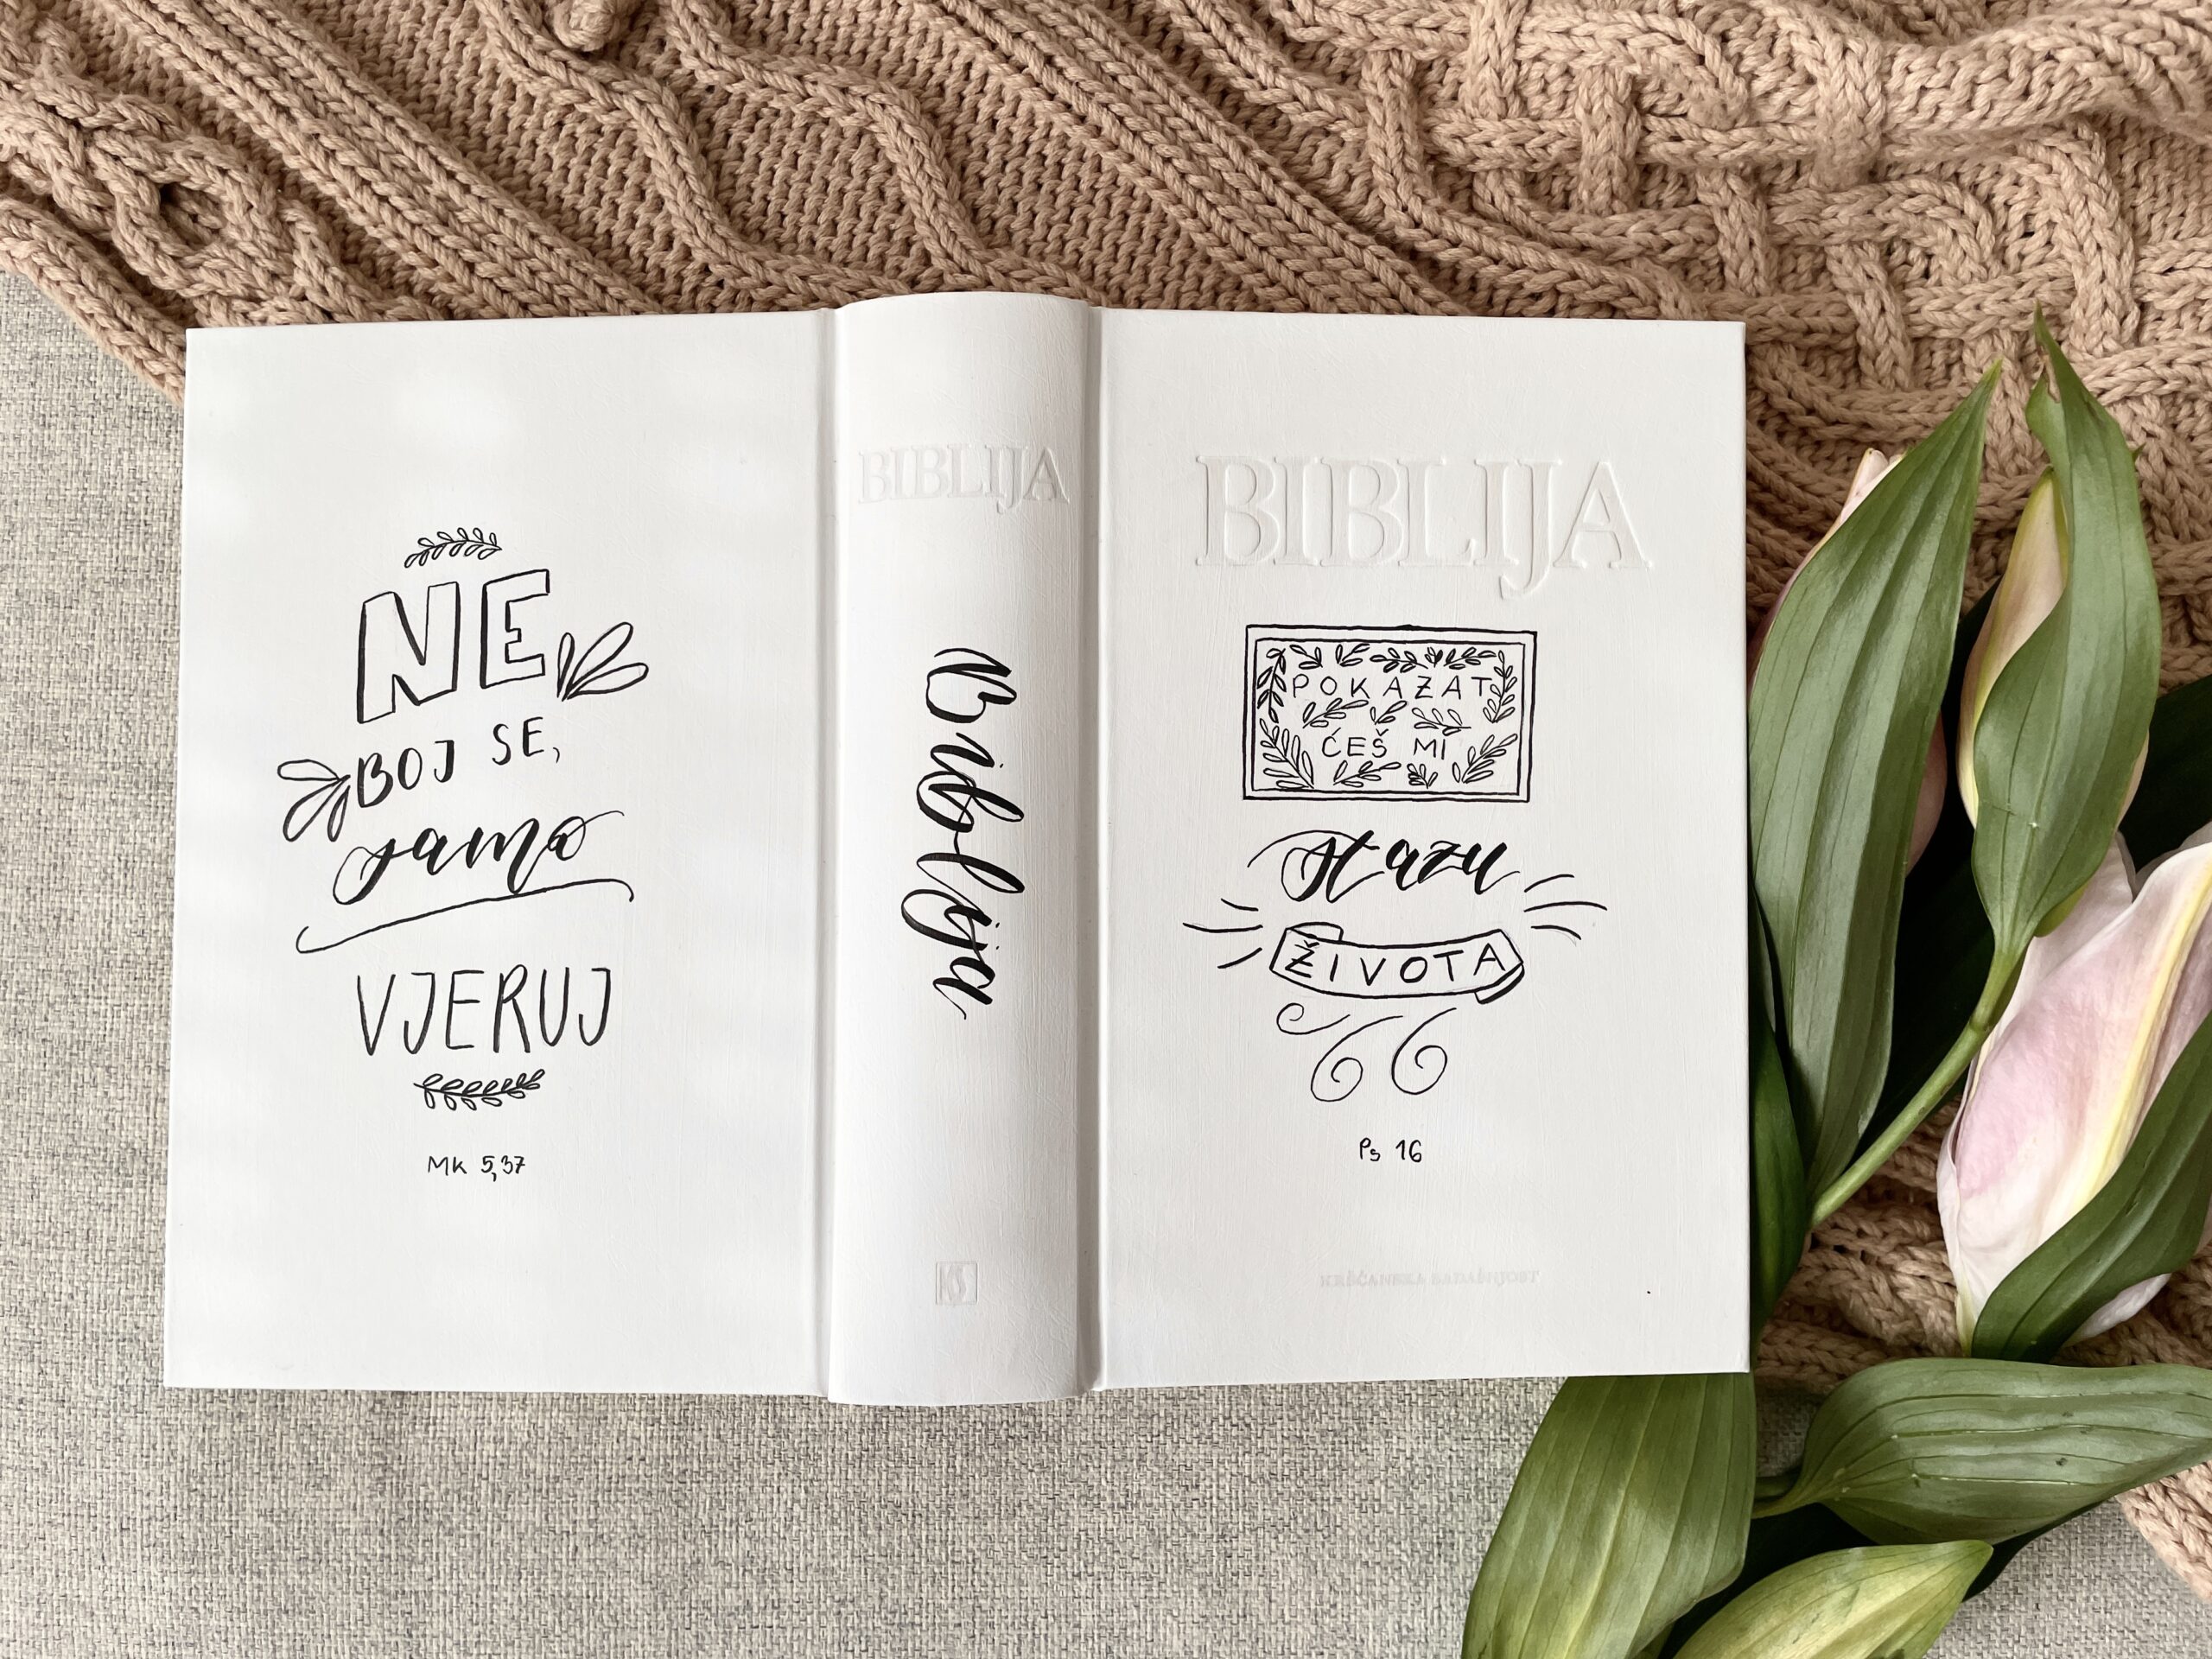 NE
BOJ SE,
samo
VJERUJ
MK 5,37
BIBLIJA
Biblija
KS
BIBLIJA
POKAZAT
ĆEŠ MI
stazu
ŽIVOTA
Ps 16
KRŠĆANSKA SADAŠNJOST